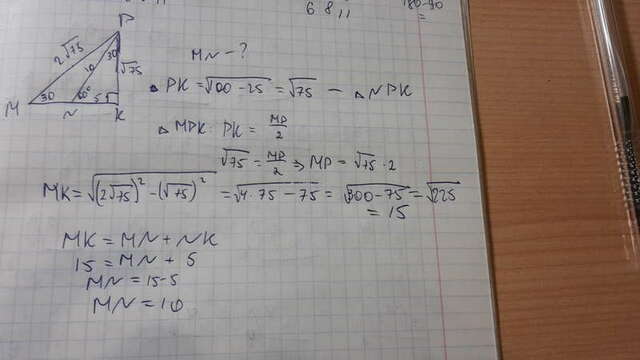 M
P
K
N
30
60°
30
5
10
2√75
√75
MN - ?
△ PK = √100 - 25 = √75 - △ NPK
△ MPK: PK = MP/2
√75 = MP/2 ⇒ MP = √75 · 2
MK = √(2√75)² - (√75)² = √4·75 - 75 = √300 - 75 = √225
= 15
MK = MN + NK
15 = MN + 5
MN = 15 - 5
MN = 10
6 8 11
180-90
=